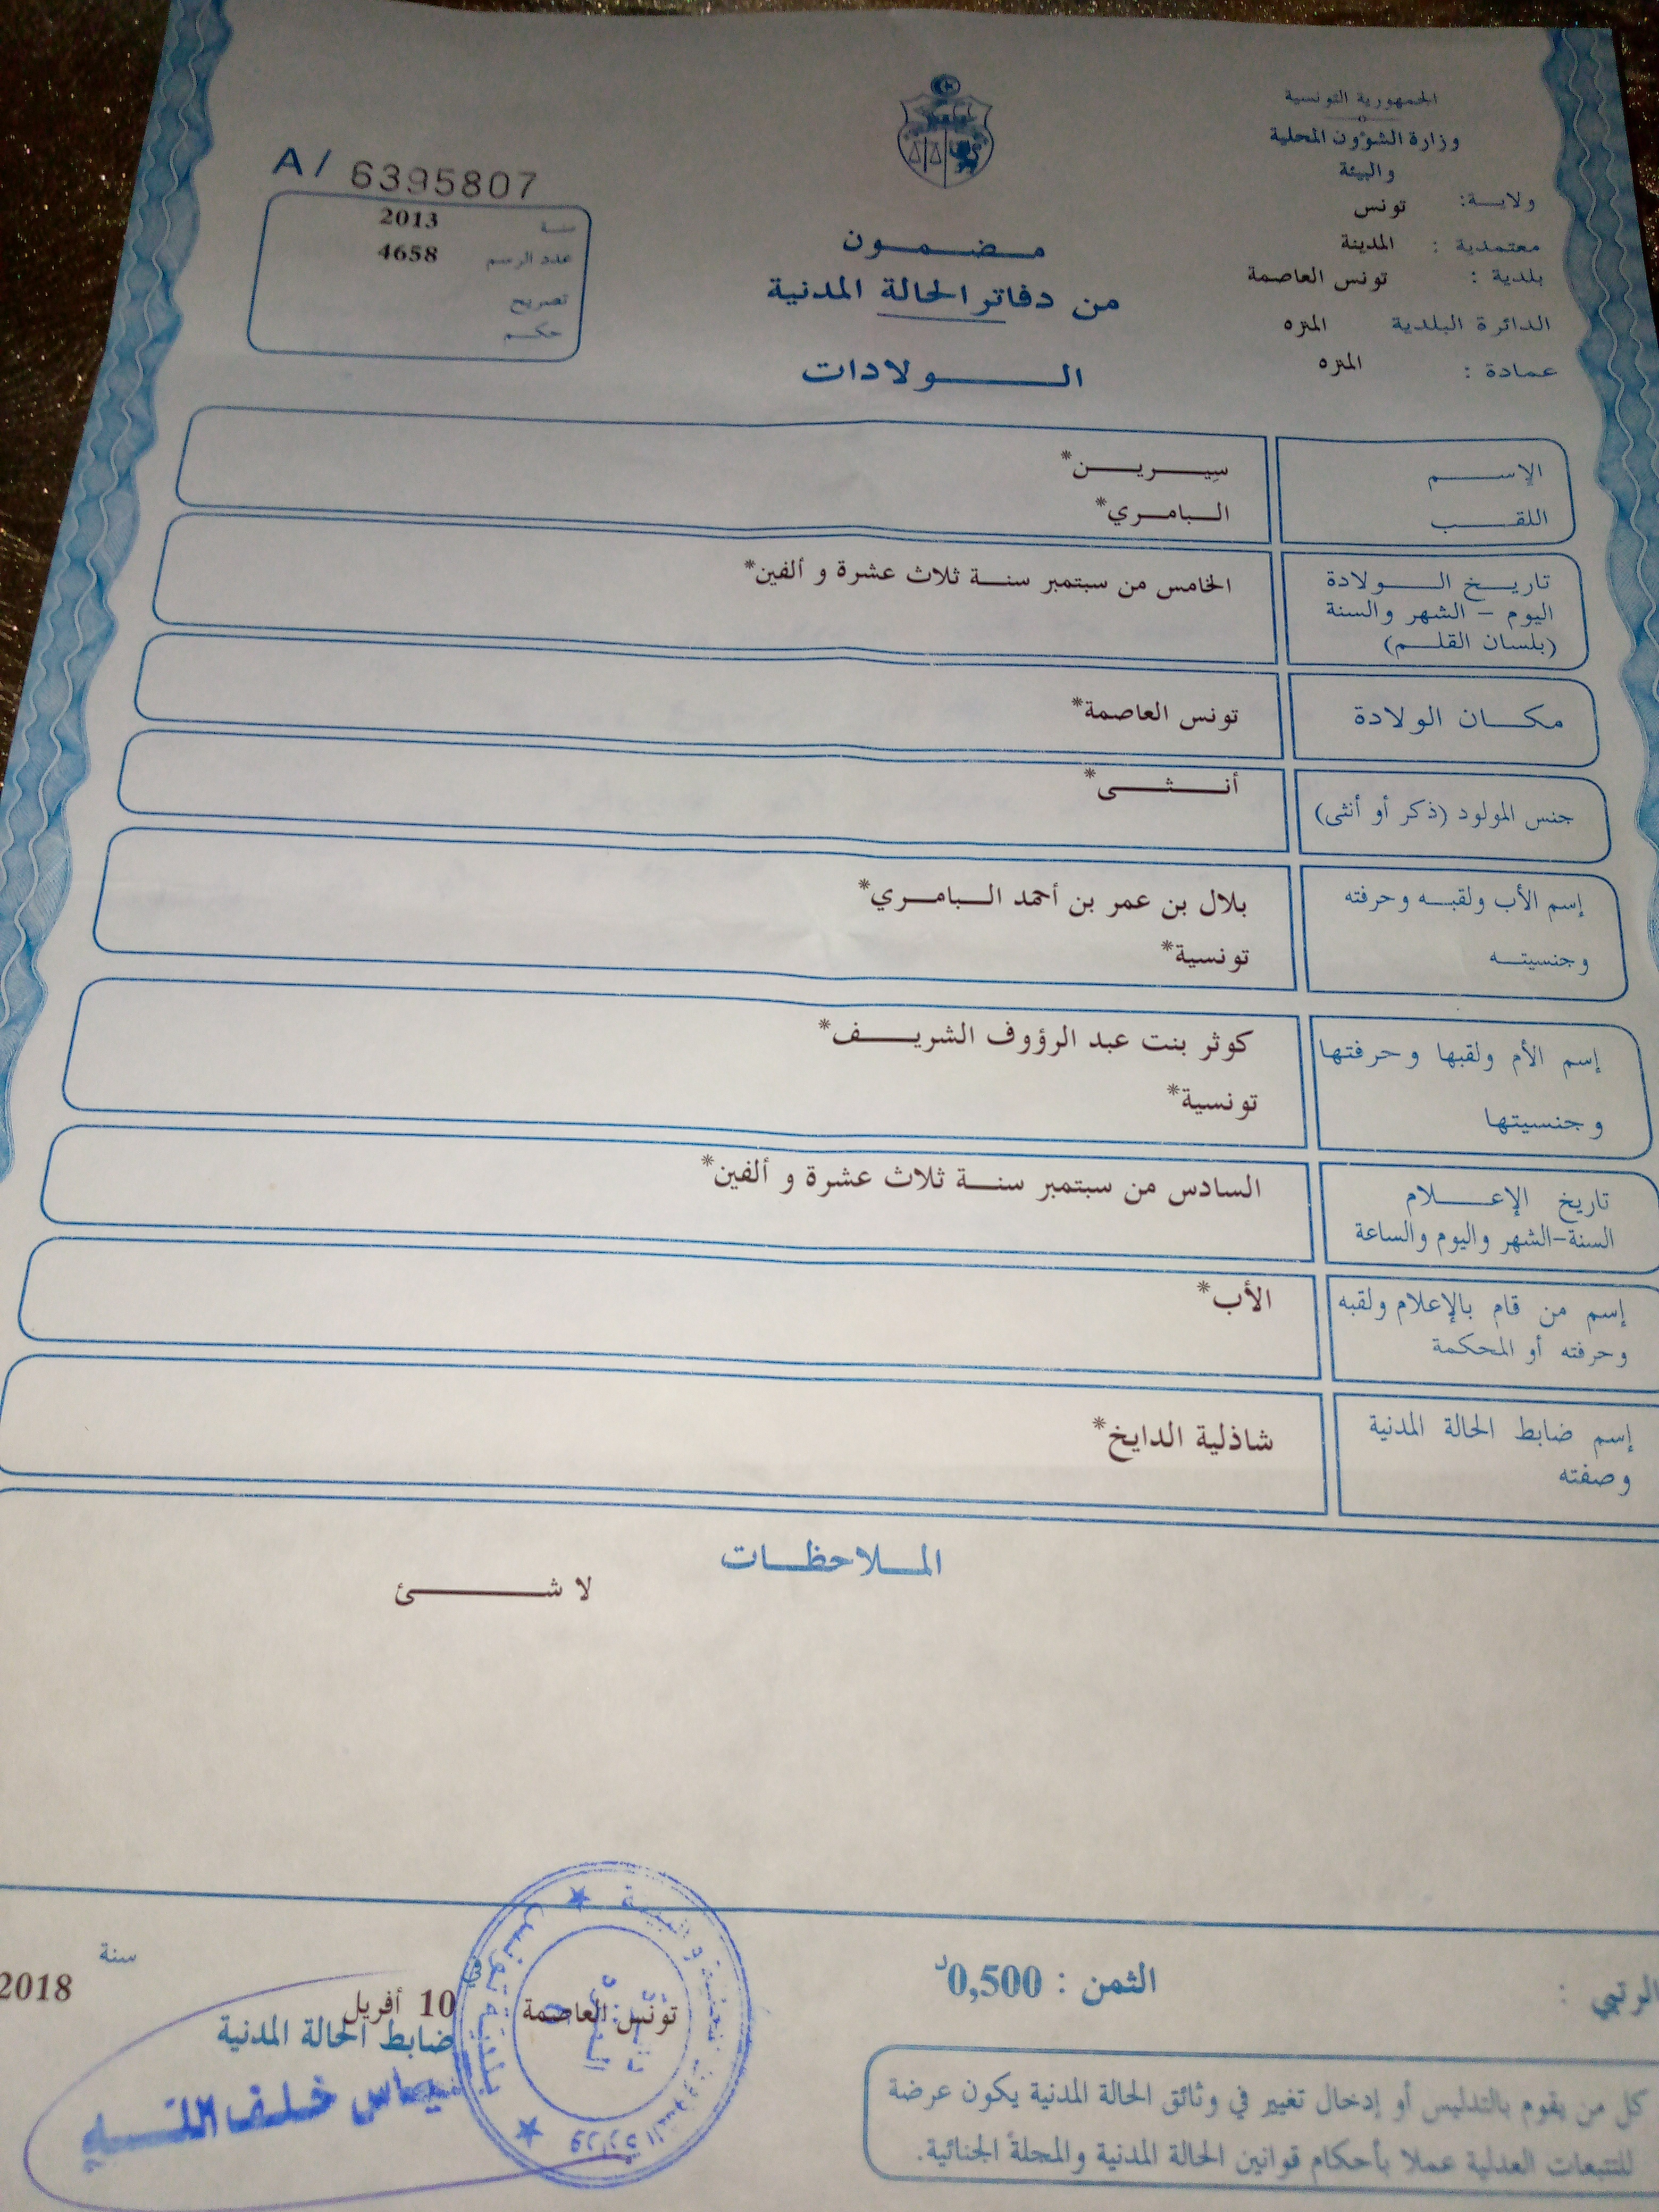 الجمهورية التونسية
وزارة الشؤون المحلية
والبيئة
ولاية: تونس
معتمدية : المدينة
بلدية : تونس العاصمة
الدائرة البلدية المنزه
عمادة : المنزه
A/ 6395807
سنة 2013
عدد الرسم 4658
تصريح
حكم
مضمون
من دفاتر الحالة المدنية
الولادات
الإسم سيرين*
اللقب البامري*
تاريخ الولادة الخامس من سبتمبر سنة ثلاث عشرة و ألفين*
اليوم - الشهر والسنة
(بلسان القلم)
مكان الولادة تونس العاصمة*
جنس المولود (ذكر أو أنثى) أنثى*
إسم الأب ولقبه وحرفته بلال بن عمر بن أحمد البامري*
وجنسيته تونسية*
إسم الأم ولقبها وحرفتها كوثر بنت عبد الرؤوف الشريف*
وجنسيتها تونسية*
تاريخ الإعلام السادس من سبتمبر سنة ثلاث عشرة و ألفين*
السنة-الشهر واليوم والساعة
إسم من قام بالإعلام ولقبه الأب*
وحرفته أو المحكمة
إسم ضابط الحالة المدنية شاذلية الدايخ*
وصفته
الملاحظات
لا شئ
الثمن : 0,500د
تونس العاصمة 10 أفريل سنة 2018
ضابط الحالة المدنية
خلف الله
بلدية تونس
كل من يقوم بالتدليس أو إدخال تغيير في وثائق الحالة المدنية يكون عرضة
للتتبعات العدلية عملا بأحكام قوانين الحالة المدنية والمجلة الجنائية.